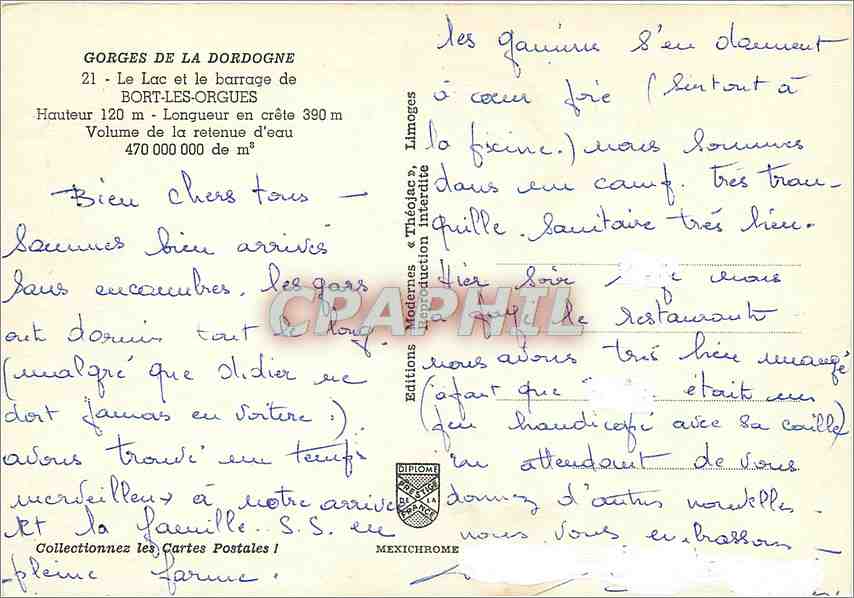 GORGES DE LA DORDOGNE
21 - Le Lac et le barrage de
BORT-LES-ORGUES
Hauteur 120 m - Longueur en crête 390 m
Volume de la retenue d'eau
470 000 000 de m³
Bien chers tous —
Sommes bien arrivés
sans encombres. les gars
ont dormis tout le long
(malgré que Didier ne
dort jamais en voiture !)
avons trouvé un temps
merveilleux à notre arrivée
et la famille S.S. en
pleine forme.
Collectionnez les Cartes Postales !
MEXICHROME
Editions Modernes « Théojac », Limoges
Reproduction interdite
DIPLOME
PRESTIGE
DE LA
FRANCE
les gamins s'en donnent
à cœur joie (surtout à
la piscine.) nous sommes
dans un camp. très tran-
quille. sanitaire très bien.
Hier soir nous
a payé le restaurant
nous avons très bien mangé
(apart que était un
peu handicapé avec sa caille)
en attendant de vous
donnez d'autres nouvelles.
nous vous embrassons —
CPAPHIL